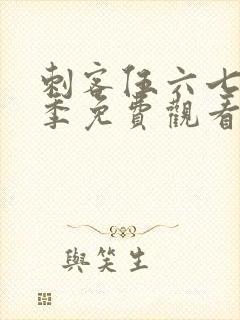 刺客伍六七
季免費觀看
與笑生